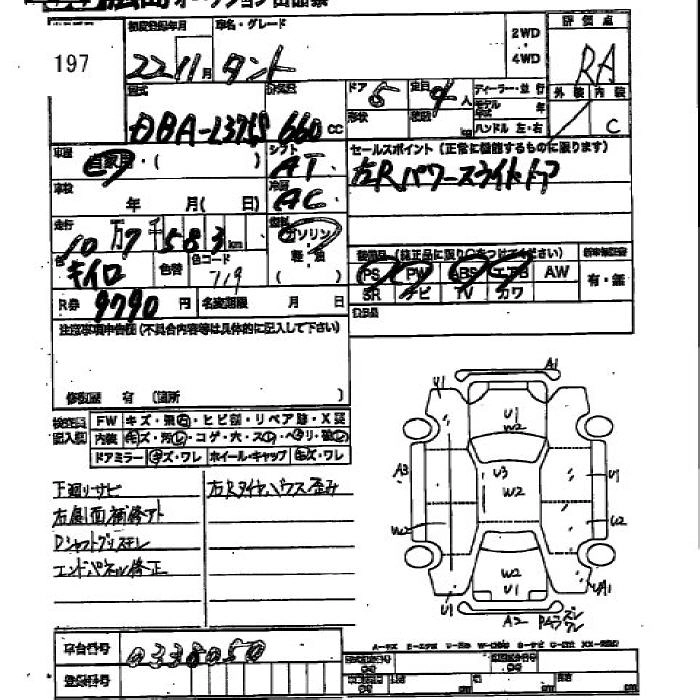 197
初度登録年月
車名・グレード
22 11月 タント
2WD
4WD
評価点
RA
型式
DBA-L375S 660 CC
ドア 5
形状
定員 4人
積載 kg
ディーラー・並行
モデル年式 年
ハンドル 左・右
外装 内装
C
車歴 自家用・( )
シフト AT
セールスポイント (正常に機能するものに限ります)
左Rパワースライドドア
車検 年 月( 日)
冷房 AC
走行 10万7千583km
燃料 ガソリン
軽・油
( )
キイロ 色替 色コード 119
(純正品に限り○をつけてください)
PS PW ABS エアB AW
SR ナビ TV カワ
有・無
R券 9790円 名変期限 月 日
注意事項申告欄(不具合内容等は具体的に記入して下さい)
修復歴 有 (箇所 )
検査員記入欄
FW キズ・飛石・ヒビ割・リペア跡・X要
内装 キズ・汚レ・コゲ・穴・スレ・ヘタリ・破レ
ドアミラー キズ・ワレ ホイール・キャップ キズ・ワレ
下廻りサビ
右側面補修アト
Dシャフトグリスモレ
エンドパネル修正
左Rタイヤハウス歪み
A1
U1
U1
W2
A3
U3
W2
U1
W2
W2
W2
U1
U1
A1
A2
車台番号 0338050
登録番号